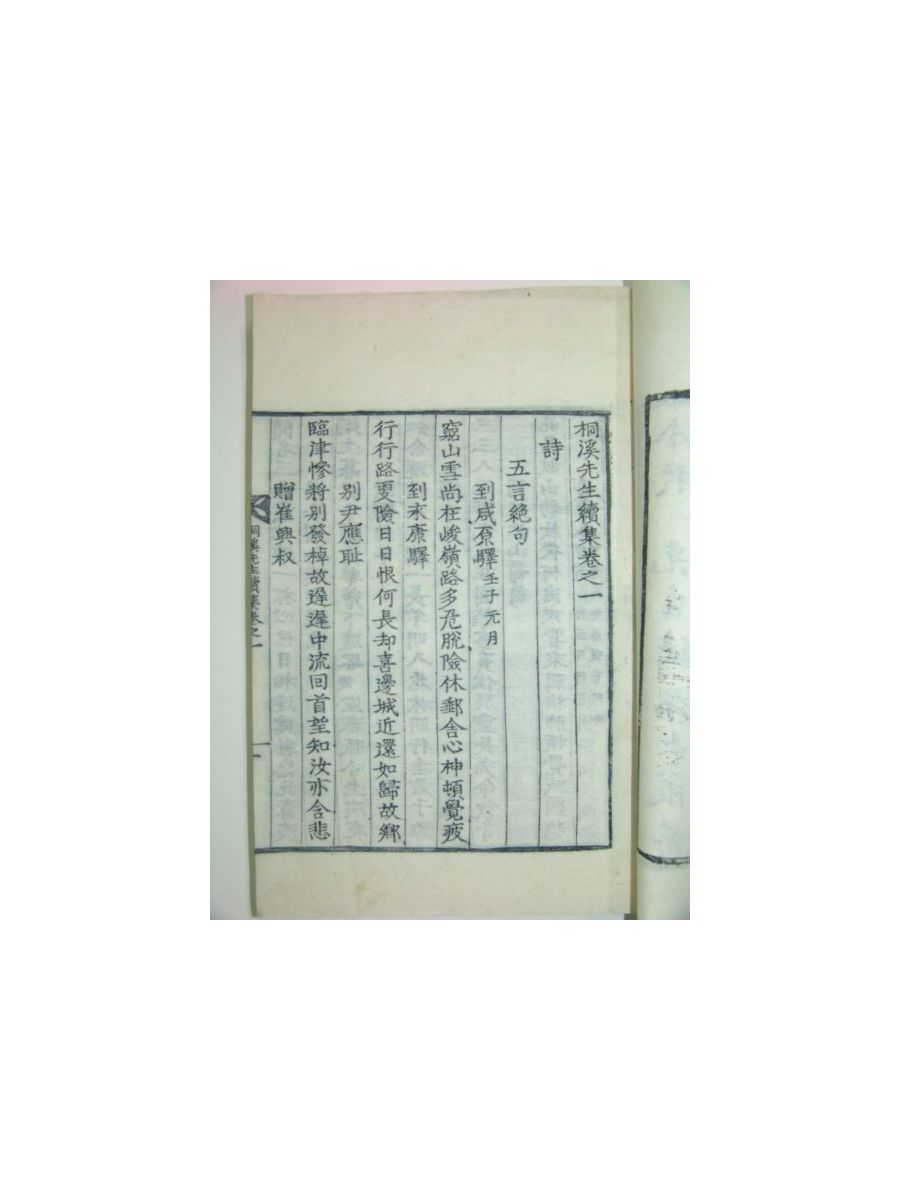 桐溪先生續集卷之一
詩
五言絶句
到咸原驛 壬子元月
窮山雪尚在峻嶺路多危脫險休郵舍心神頓覺疲
到永康驛
行行路更險日日恨何長却喜邊城近還如歸故鄉
别尹應耻
臨津慘將别發棹故遲遲中流回首望知汝亦含悲
贈崔興叔
桐溪先生續集卷之一
一